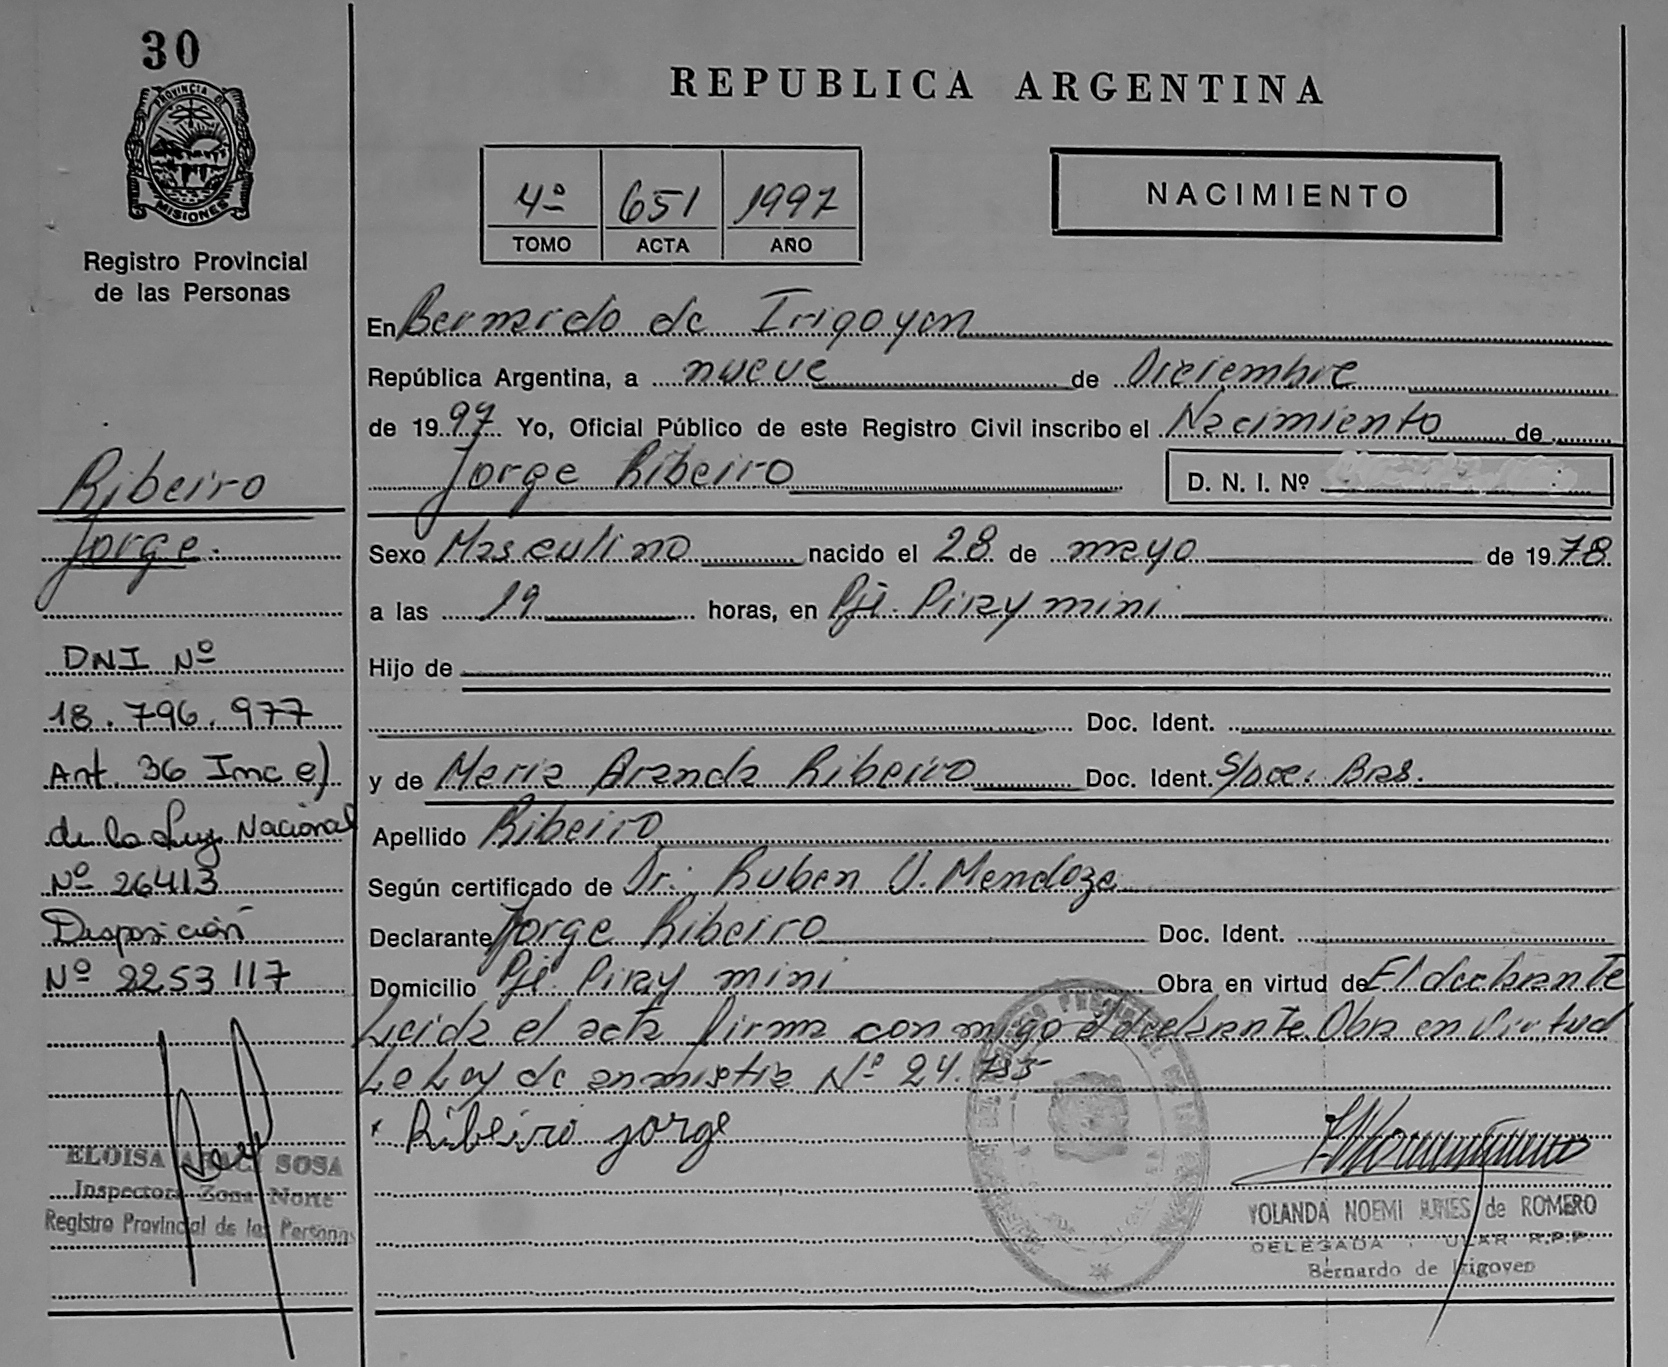 30
PROVINCIA DE
MISIONES
Registro Provincial
de las Personas
Ribeiro
Jorge.
DNI Nº
18.796.977
Art. 36 Inc e)
de la Ley Nacional
Nº 26413
Disposición
Nº 2253 117
ELOISA SOSA
Inspectora Zona Norte
Registro Provincial de las Personas
REPUBLICA ARGENTINA
4º 651 1997
TOMO ACTA AÑO
NACIMIENTO
En Bernardo de Irigoyen
República Argentina, a nueve de Diciembre
de 1997 Yo, Oficial Público de este Registro Civil inscribo el Nacimiento de
Jorge Ribeiro D. N. I. Nº
Sexo Masculino nacido el 28 de mayo de 1978
a las 19 horas, en Pje. Piray mini
Hijo de
Doc. Ident.
y de Maria Aranda Ribeiro Doc. Ident. S/Doc. Bras.
Apellido Ribeiro
Según certificado de Dr. Ruben V. Mendoza
Declarante Jorge Ribeiro Doc. Ident.
Domicilio Pje. Piray mini Obra en virtud de El declarante
Leida el acta firma conmigo el declarante. Obra en virtud
La Ley de anmistia Nº 24.755
x Ribeiro jorge
YOLANDA NOEMI de ROMERO
DELEGADA R.P.P.
Bernardo de Irigoyen